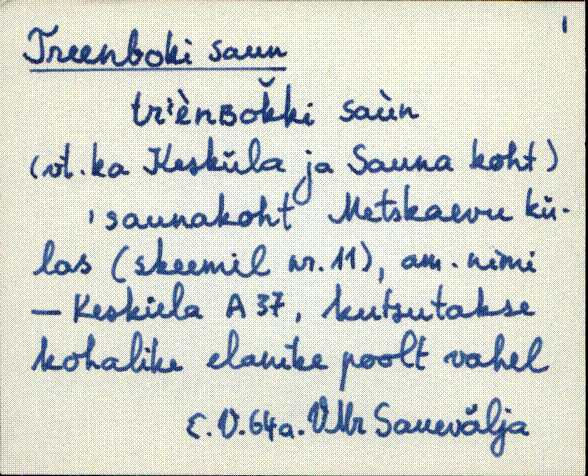 1
Treenboki saun
tr'ènBŏkki saùn
(vt. ka Kesküla ja Sauna koht)
'saunakoht Metskaevu kü-
las (skeemil nr. 11), am. nimi
— Kesküla A 37, kutsutakse
kohalike elanike poolt vahel
E. V. 64a. VMr Sauevälja